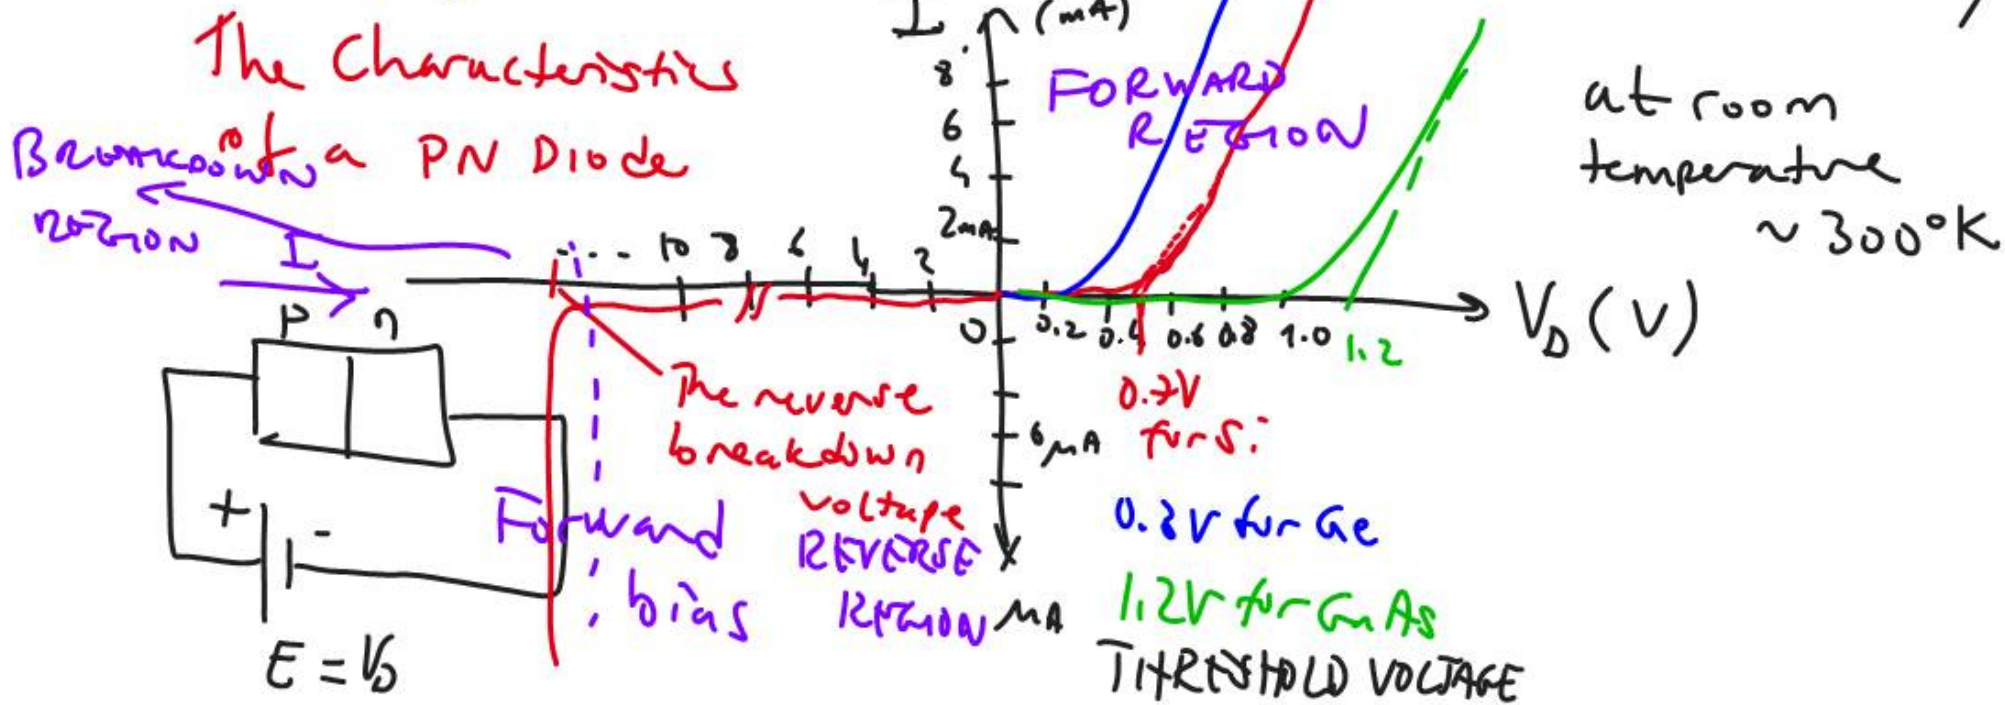 The Characteristics
of a PN Diode
BREAKDOWN
REGION
I
p n
+ -
E = VD
Forward
bias
I (mA)
8
6
4
2mA
FORWARD
REGION
at room
temperature
~ 300°K
10 8 6 4 2
0 0.2 0.4 0.6 0.8 1.0 1.2
VD (V)
The reverse
breakdown
voltage
REVERSE
REGION
6 μA
μA
0.7V
for Si
0.3V for Ge
1.2V for GaAs
THRESHOLD VOLTAGE